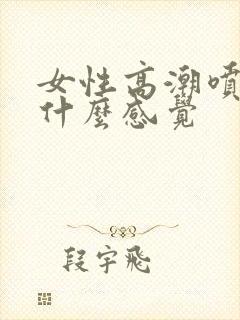 女性高潮噴
什麼感覺
段宇飛